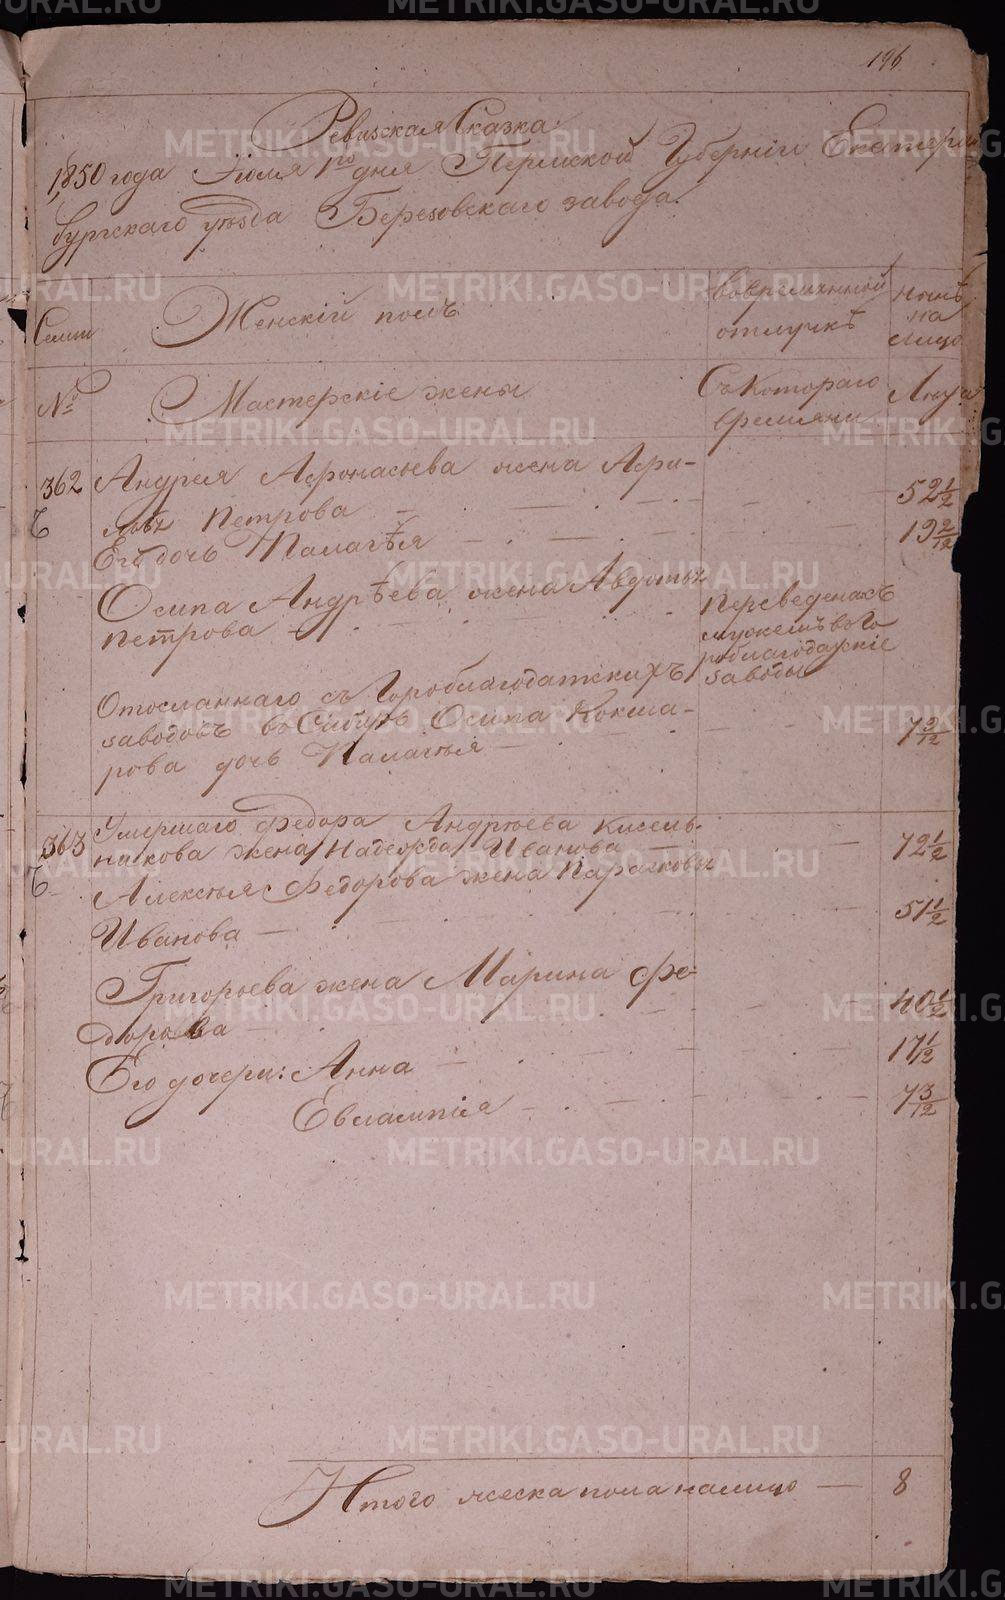 196
Ревизская Сказка
1850 года Iюля 1го дня Пермской Губернiи Екатерин
бургскаго уѣзда Березовскаго завода.
Семьи
Женскiй полъ
Вовременной
отлучкѣ
нынѣ
на
лицо
№
Мастерскiе жены
Съ котораго
времяни
Лѣта
362
Андрея Афонасьева жена Афи-
мья Петрова
52 1/2
Его дочь Палагѣя
19 2/12
Осипа Андрѣева жена Авдотья
Петрова
Переведена съ
мужемъ в Го
роблагодатскiе
заводы
Отосланнаго съ Гороблагодатскихъ
заводовъ въ Сибирь Осипа Кокша-
рова дочь Палагея
7 9/12
363
Умершаго Федора Андрѣева Кисель-
никова жена Надежда Иванова
72 1/2
Алексѣя Федорова жена Парасковья
Иванова
51 1/2
Григорьева жена Марина Фе-
дорова
40 1/2
Его дочери: Анна
17 1/12
Евлампiя
7 3/12
Итого женска пола налицо — 8
METRIKI.GASO-URAL.RU